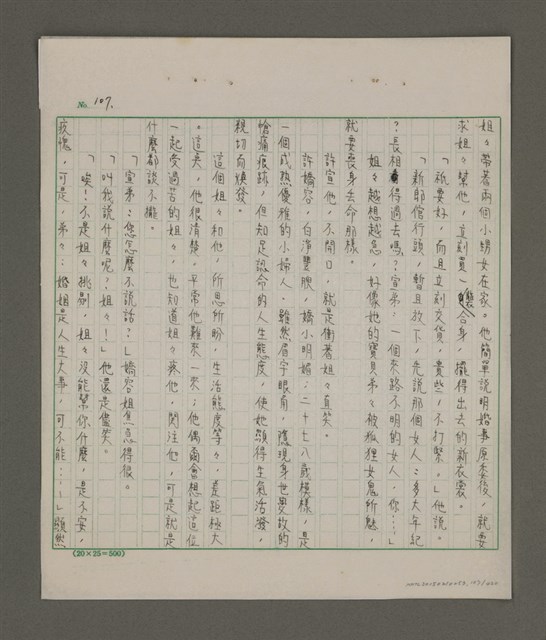 No. 107.
姐々帶著兩個小甥女在家。他簡單說明婚事原委後，就要
求姐々幫他，立刻買一幾合身，擺得出去的新衣裳。
「祇要好，而且立刻交貨，貴些，不打緊。」他說。
「新郎倌行頭，暫且放下，先說那個女人：多大年紀
？長相得過去嗎？宣弟：一個來路不明的女人，你…」
姐々越想越急，好像她的寶貝弟々被狐狸女鬼所魅，
就要喪身去命那樣。
許宣他，不開口，就是衝著姐々直笑。
許嬌容，白淨豐腴，嬌小明媚；二十七八歲模樣，是
一個成熟優雅的小婦人。雖然眉宇眼角，隱現身世變故的
愴痛痕跡，但知足認命的人生態度，使她顯得生氣活潑，
親切而煥發。
這個姐々和他，所思所盼，生活態度等々，差距極大
。這矣，他很清楚。平常他難來一來；他偶爾會想起這位
一起受過苦的姐々，也知道姐々疼他，関注他，可是就是
什麼都談不攏。
「宣弟：您怎麼不說話？」嬌容姐焦急得很。
「叫我說什麼呢？姐々！」他還是儘笑。
「唉！不是姐々挑剔，姐々沒能幫你什麼，是不安，
疚愧，可是，弟々：婚姻是人生大事，可不能……」顯然
(20×25=500)